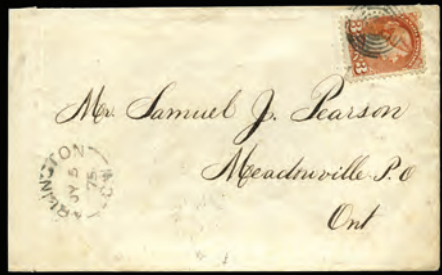 Mr. Samuel J. Pearson
Meadowville P.O
Ont
ARLINGTON
JY 5
75
3 3